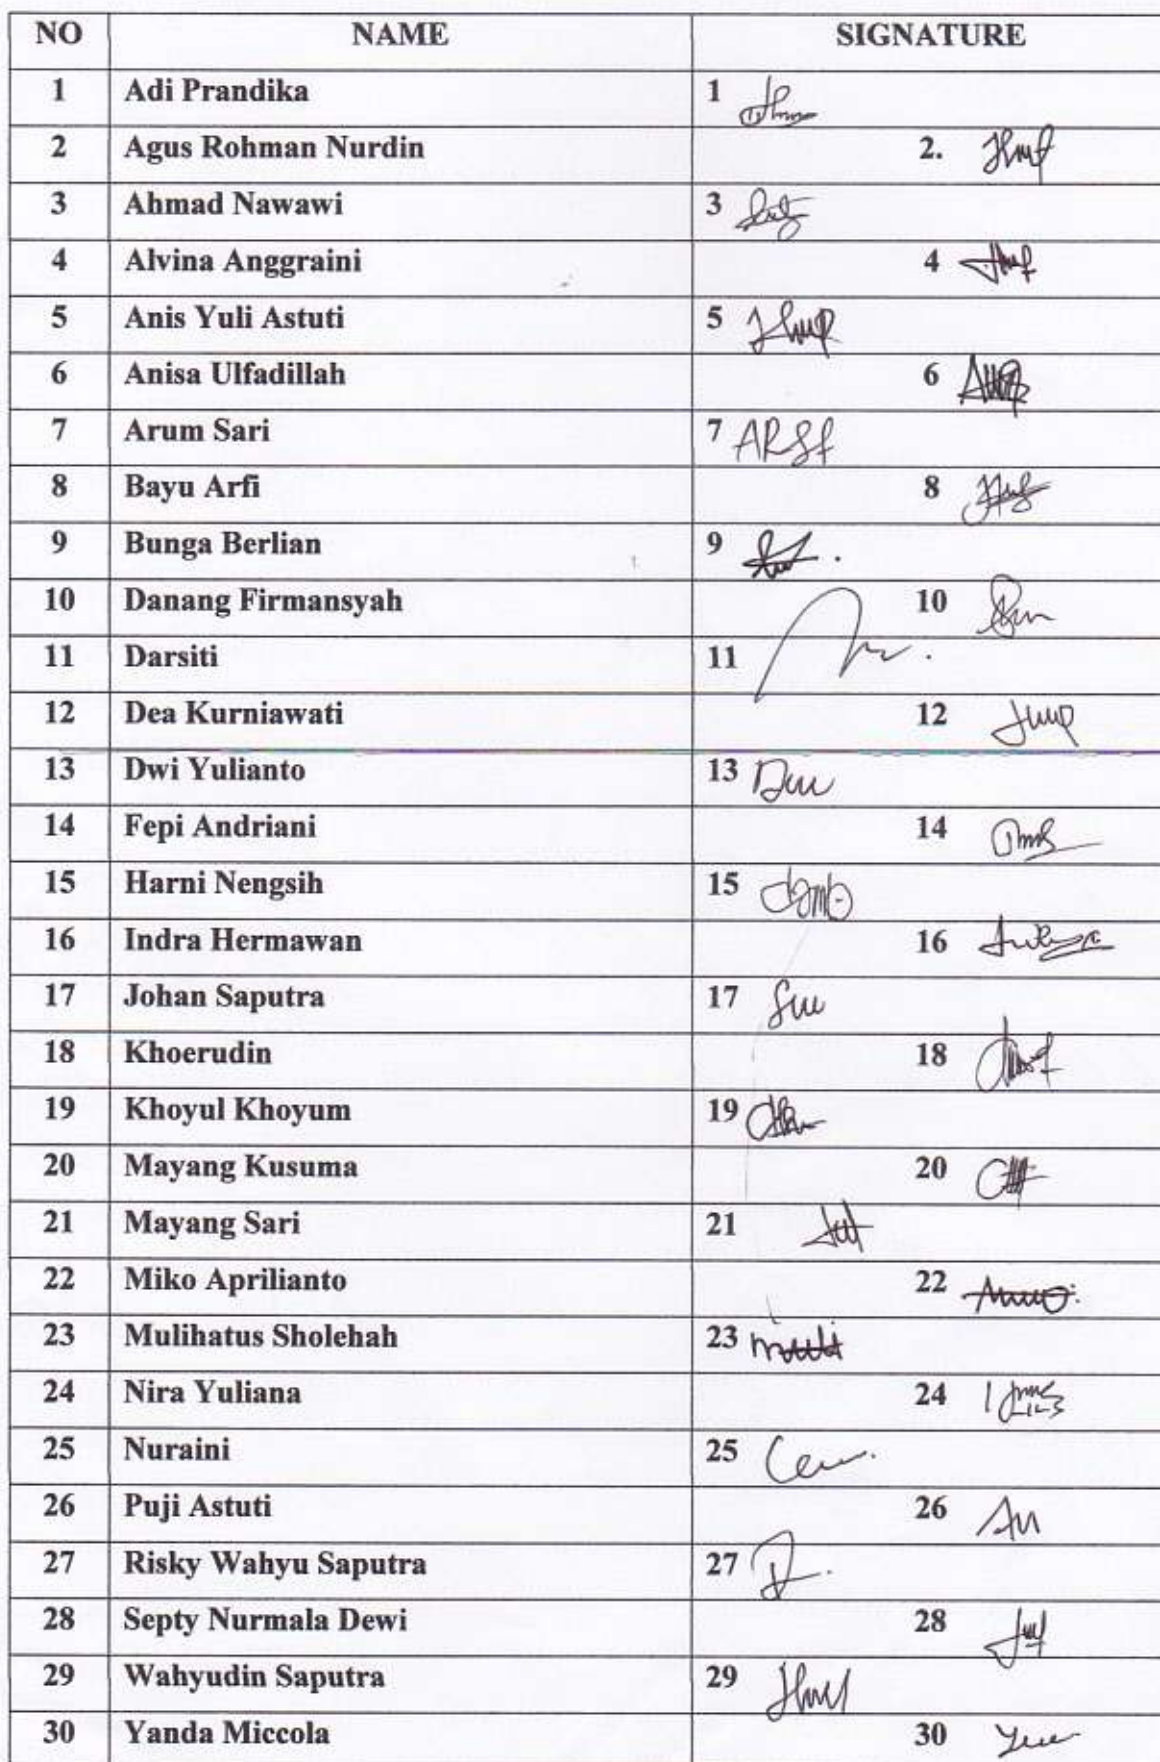 NO NAME SIGNATURE
1 Adi Prandika 1
2 Agus Rohman Nurdin 2.
3 Ahmad Nawawi 3
4 Alvina Anggraini 4
5 Anis Yuli Astuti 5
6 Anisa Ulfadillah 6
7 Arum Sari 7
8 Bayu Arfi 8
9 Bunga Berlian 9
10 Danang Firmansyah 10
11 Darsiti 11
12 Dea Kurniawati 12
13 Dwi Yulianto 13
14 Fepi Andriani 14
15 Harni Nengsih 15
16 Indra Hermawan 16
17 Johan Saputra 17
18 Khoerudin 18
19 Khoyul Khoyum 19
20 Mayang Kusuma 20
21 Mayang Sari 21
22 Miko Aprilianto 22
23 Mulihatus Sholehah 23
24 Nira Yuliana 24
25 Nuraini 25
26 Puji Astuti 26
27 Risky Wahyu Saputra 27
28 Septy Nurmala Dewi 28
29 Wahyudin Saputra 29
30 Yanda Miccola 30